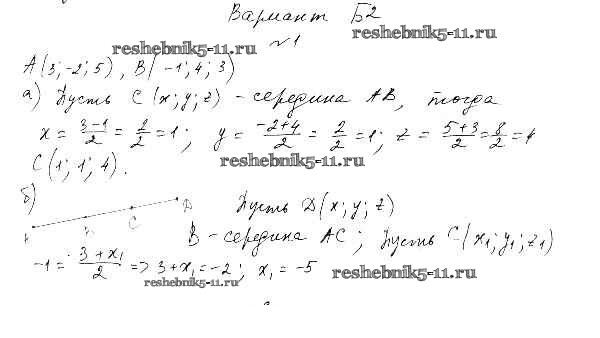 Вариант Б2
reshebnik5-11.ru
reshebnik5-11.ru
№1
A(3;-2;5), B(-1;4;3)
а) Пусть C(x;y;z) - середина AB, тогда
x = \frac{3-1}{2} = \frac{2}{2} = 1; y = \frac{-2+4}{2} = \frac{2}{2} = 1; z = \frac{5+3}{2} = \frac{8}{2} = 4
reshebnik5-11.ru
C(1;1;4).
б)
C D
Пусть D(x;y;z)
B - середина AC; Пусть C(x₁;y₁;z₁)
-1 = \frac{3+x₁}{2} => 3+x₁ = -2; x₁ = -5
reshebnik5-11.ru
reshebnik5-11.ru